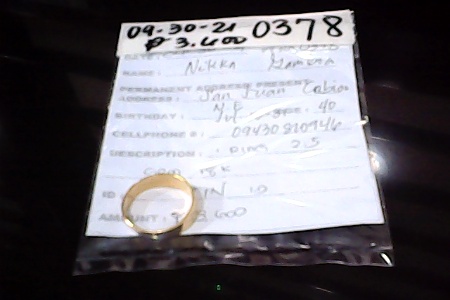 09-30-21 0378
₱ 3.400
DATE:
NAME: Nikka Gamboa
PERMANENT ADDRESS PRESENT
ADDRESS: San Juan
BIRTHDAY: age: 40
CELLPHONE #: 09430810946
DESCRIPTION: 1 ring 2.5
gm 18k
ID IN ID
AMOUNT: ₱ 3,400